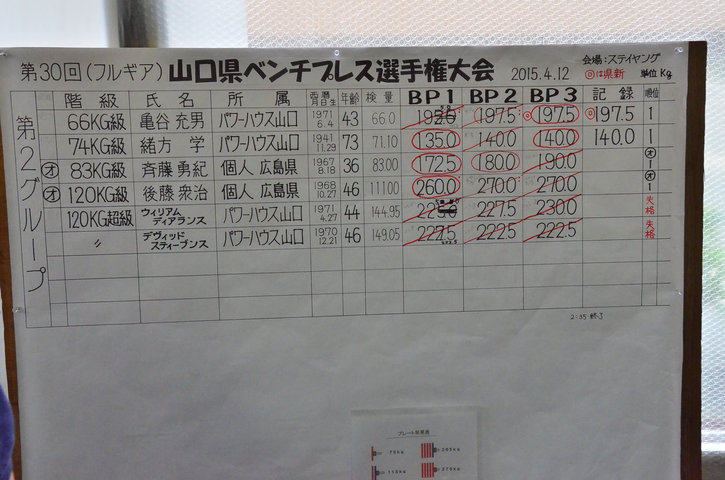 第30回(フルギア) 山口県ベンチプレス選手権大会 2015.4.12 会場:ステイヤング ◎は県新 単位Kg
第2グループ
階級 氏名 所属 西暦 月日生 年齢 検量 BP1 BP2 BP3 記録 順位
66KG級 亀谷充男 パワーハウス山口 1971 6.4 43 66.0 197.5 197.5 ◎197.5 1
74KG級 緒方 学 パワーハウス山口 1941 11.29 73 71.10 135.0 140.0 140.0 140.0 1
オ 83KG級 斉藤勇紀 個人 広島県 1967 8.18 46 83.00 172.5 180.0 190.0 オ 1
オ 120KG級 後藤衆治 個人 広島県 1968 10.27 46 111.00 260.0 270.0 270.0 オ 1
120KG超級 ウィリアム ディアランス パワーハウス山口 1971 4.27 44 144.95 227.5 230.0 失格
〃 デヴィッド スティーブンス パワーハウス山口 1970 12.21 46 149.05 222.5 222.5 失格
2:35 終了